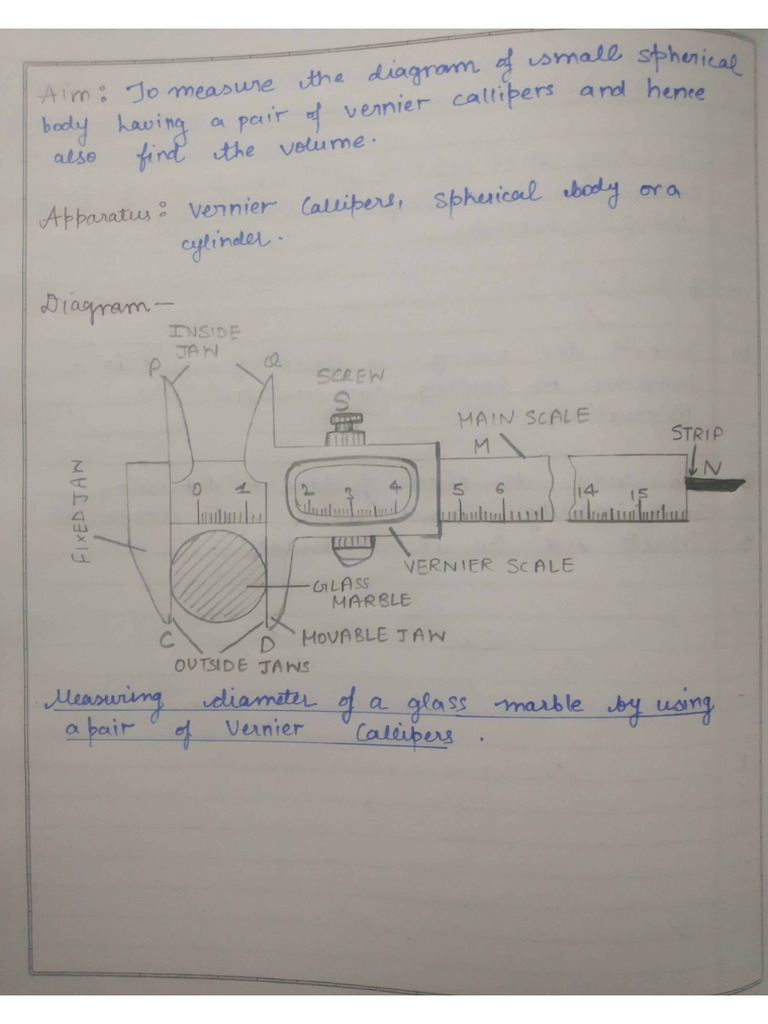 Aim: To measure the diagram of small spherical
body having a pair of vernier callipers and hence
also find the volume.
Apparatus: Vernier Callipers, Spherical body or a
cylinder.
Diagram —
INSIDE
JAW
P
Q
SCREW
S
MAIN SCALE
M
STRIP
N
FIXED JAW
0 1 2 3 4 5 6 14 15
VERNIER SCALE
GLASS
MARBLE
C
D
MOVABLE JAW
OUTSIDE JAWS
Measuring diameter of a glass marble by using
a pair of Vernier Callipers.